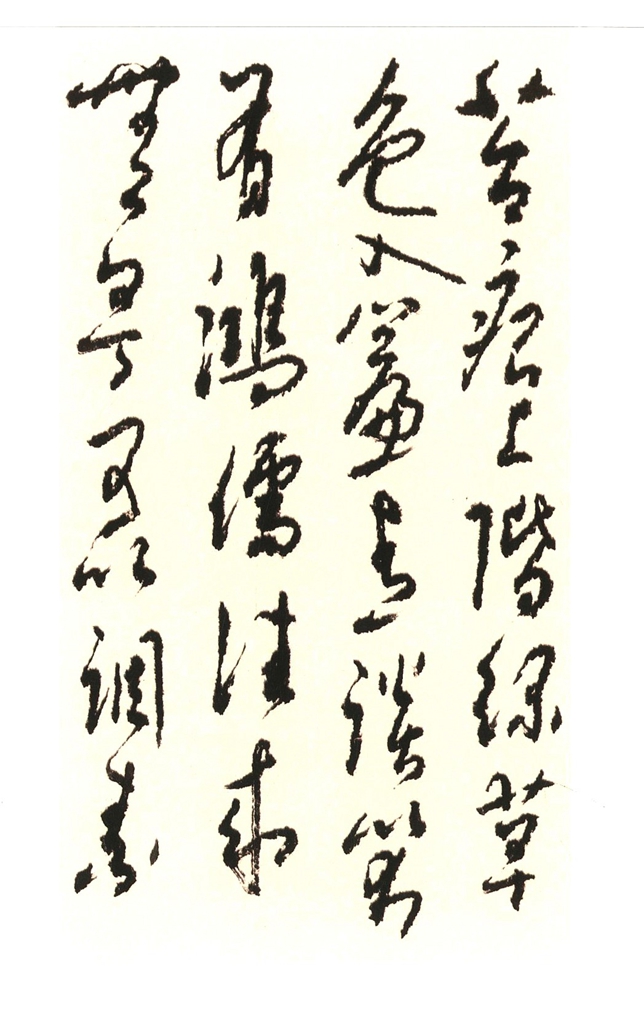 苔痕上階綠草
色入簾青談笑
有鴻儒往來
無白丁可以調素